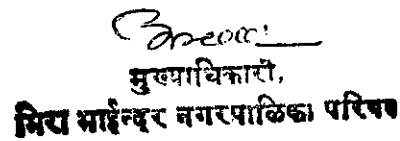 मुख्याधिकारी,
मिरा भाईन्दर नगरपालिका परिषद